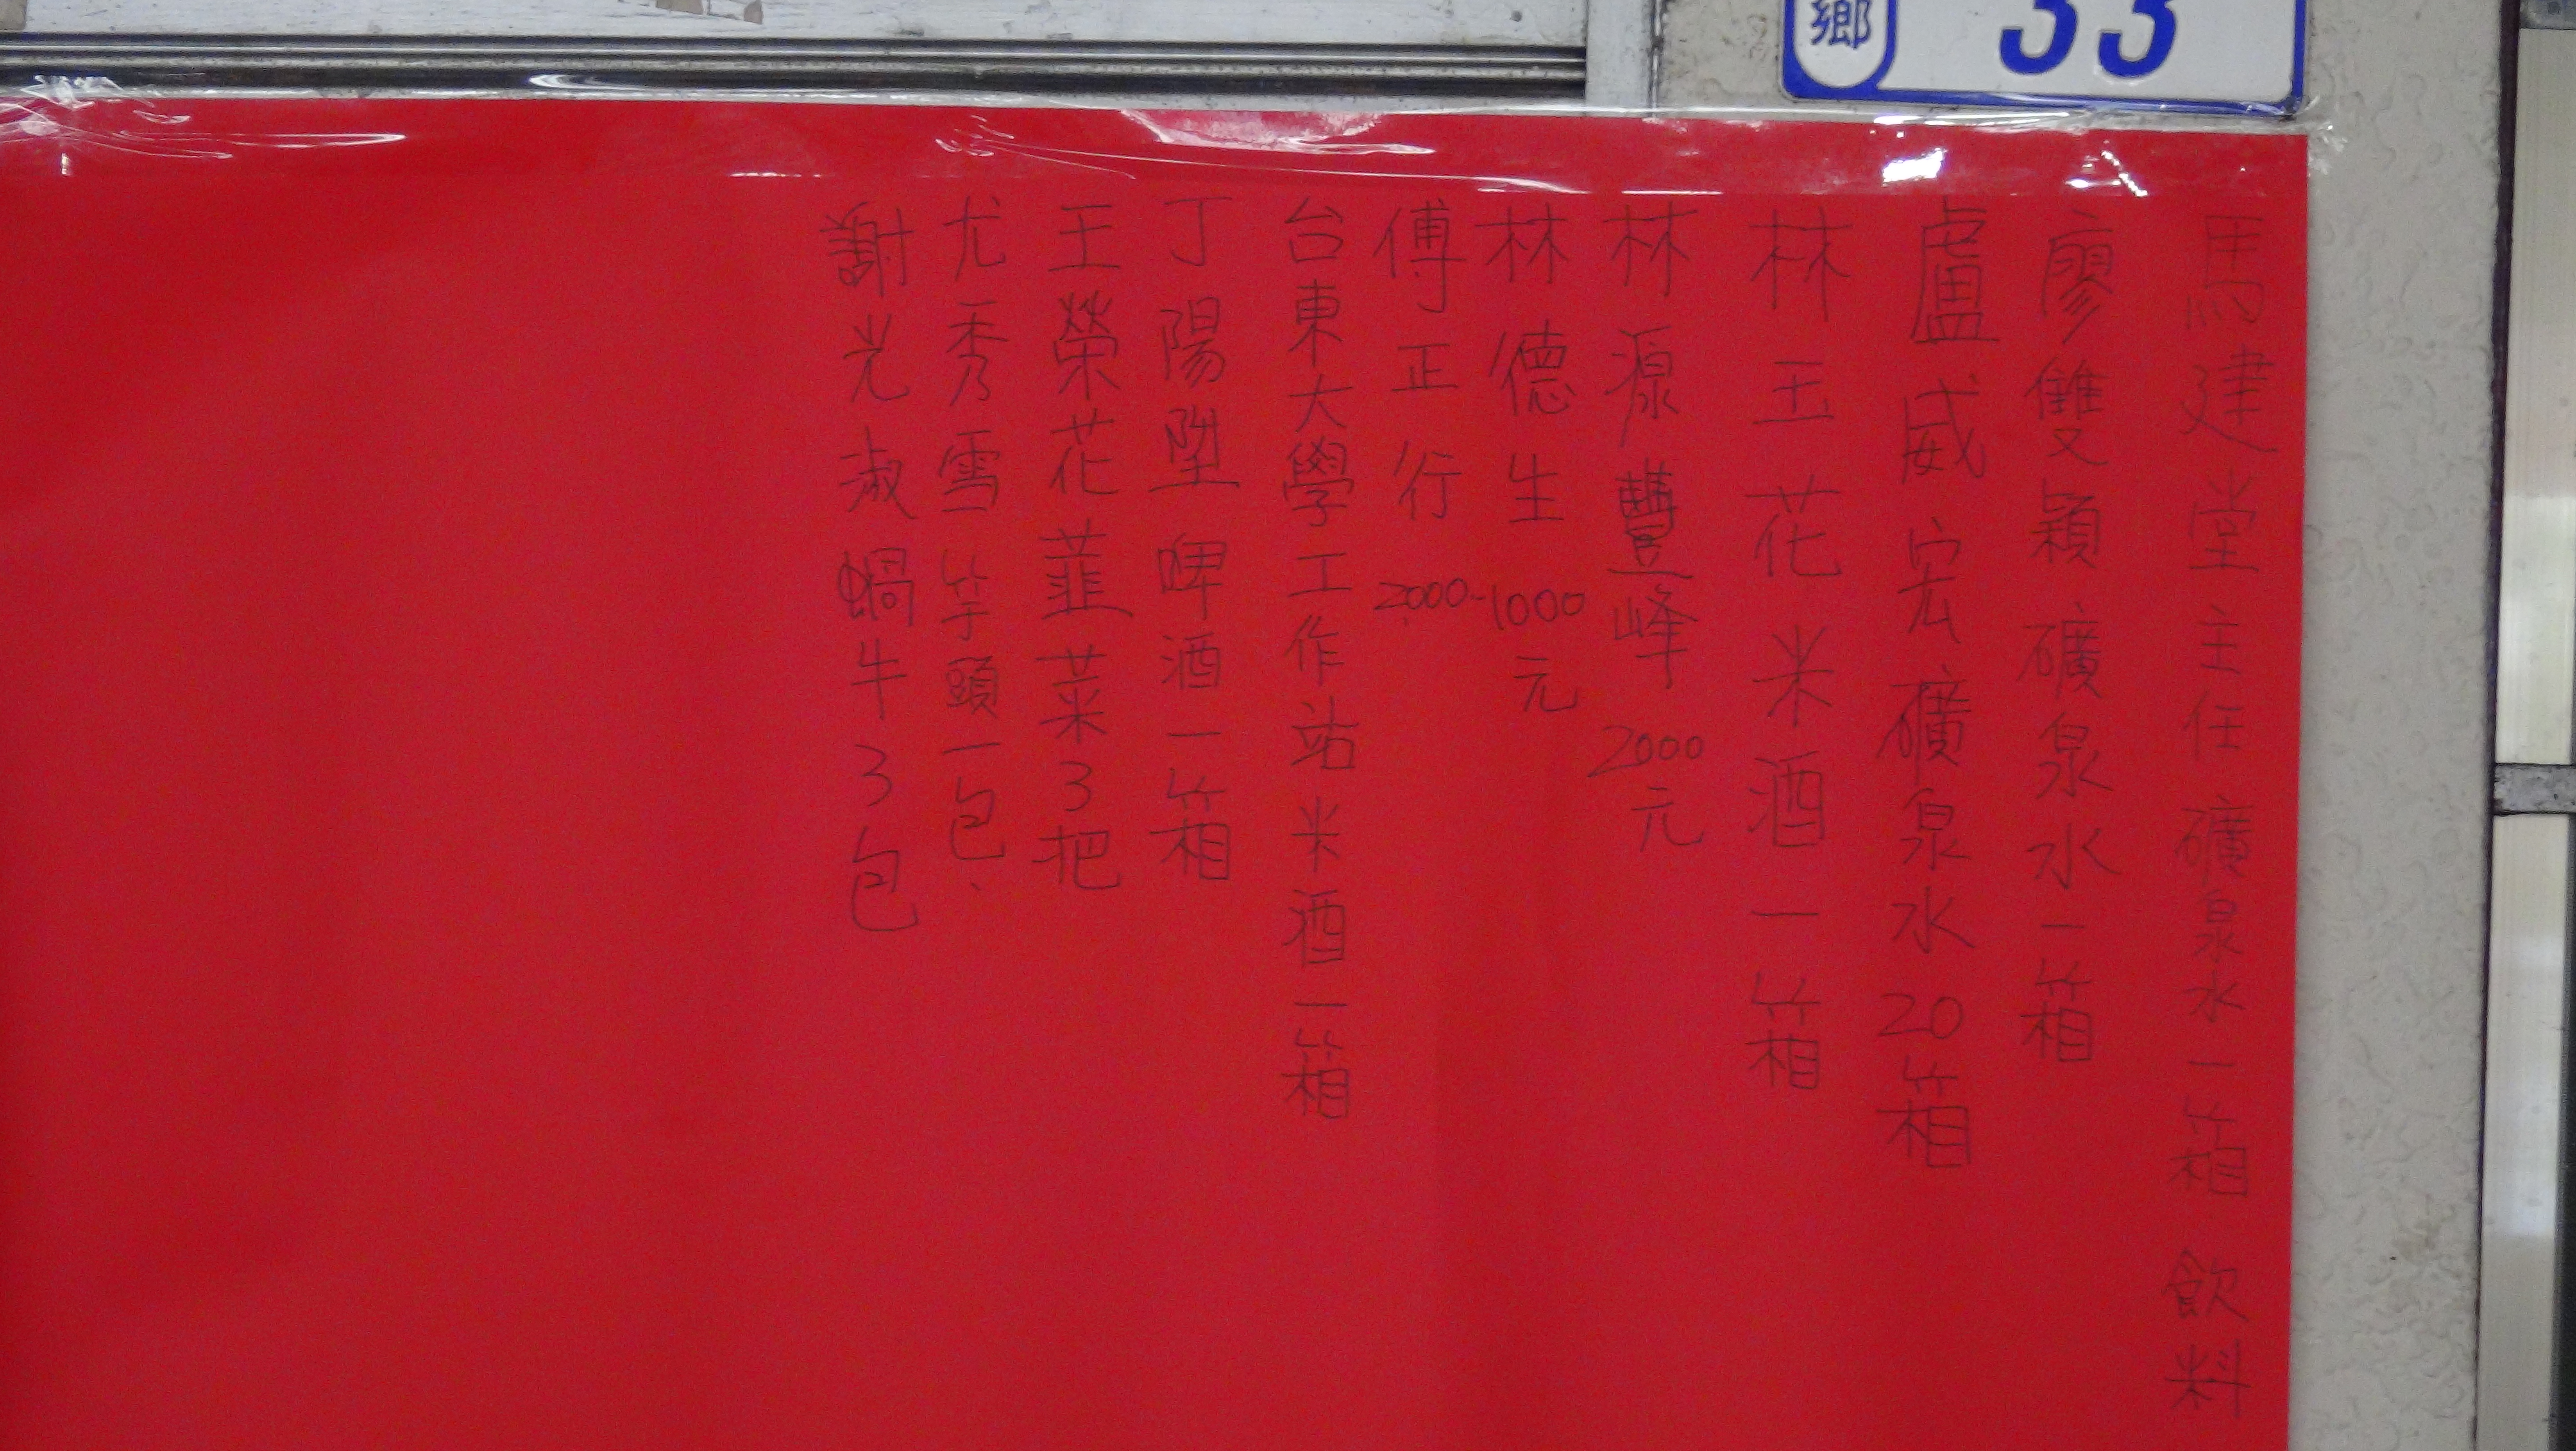 鄉 33
馬建堂主任 礦泉水一箱 飲料
廖雙穎 礦泉水一箱
盧威宏 礦泉水20箱
林玉花 米酒一箱
林源豐峰 2000元
林德生 1000元
傅正行 2000-
台東大學工作站 米酒一箱
丁陽塱 啤酒一箱
王榮花 韮菜3把
尤秀雪 竽頭一包、
謝光淑 蝸牛3包